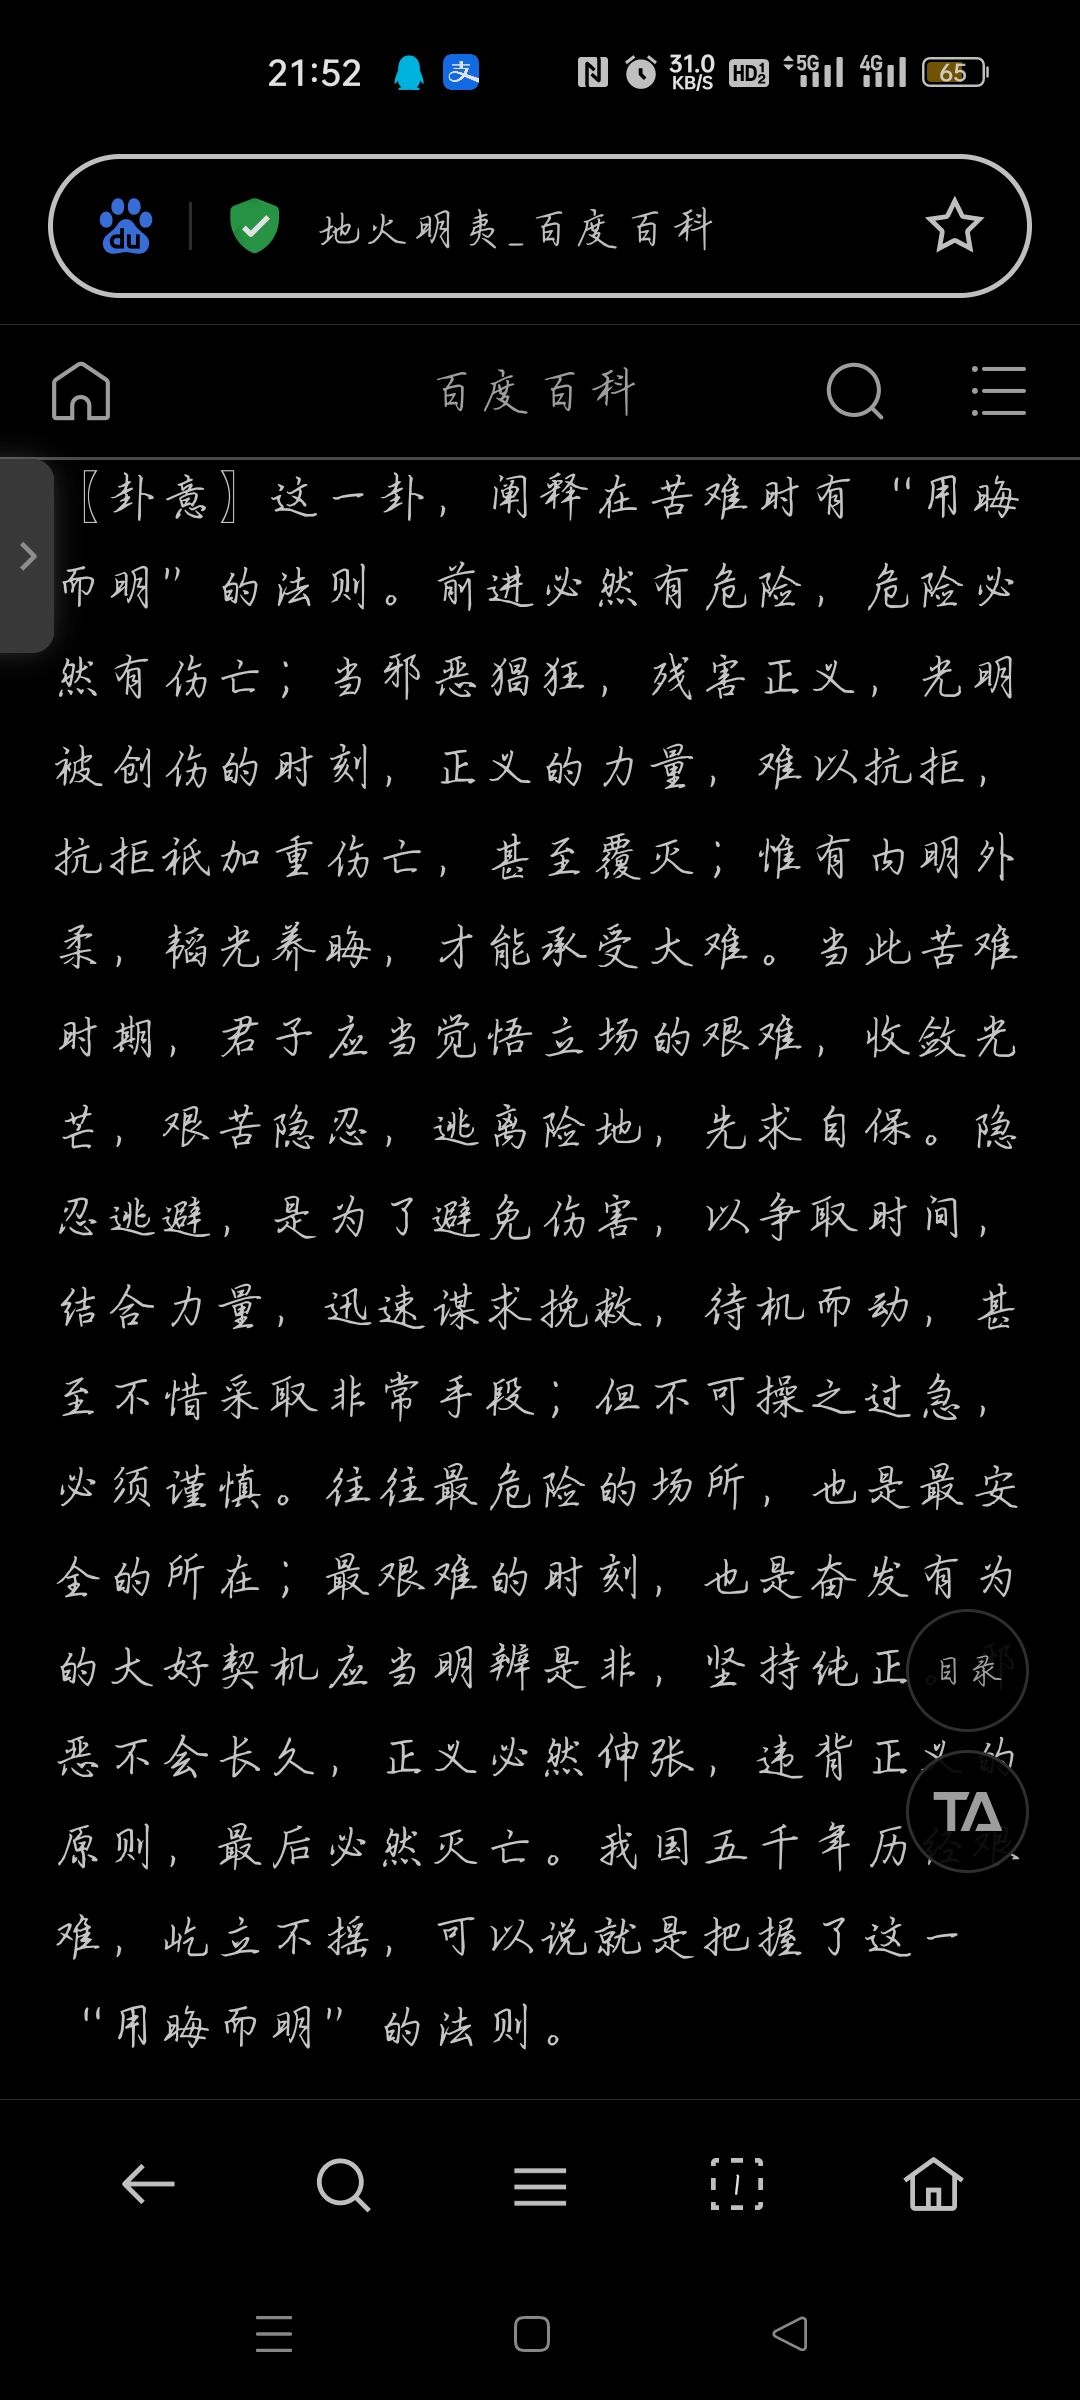 21:52 支 31.0 KB/S HD 1 2 5G 4G 65
du 地火明夷_百度百科
百度百科
〖卦意〗这一卦，阐释在苦难时有“用晦
而明”的法则。前进必然有危险，危险必
然有伤亡；当邪恶猖狂，残害正义，光明
被创伤的时刻，正义的力量，难以抗拒，
抗拒祇加重伤亡，甚至覆灭；惟有内明外
柔，韬光养晦，才能承受大难。当此苦难
时期，君子应当觉悟立场的艰难，收敛光
芒，艰苦隐忍，逃离险地，先求自保。隐
忍逃避，是为了避免伤害，以争取时间，
结合力量，迅速谋求挽救，待机而动，甚
至不惜采取非常手段；但不可操之过急，
必须谨慎。往往最危险的场所，也是最安
全的所在；最艰难的时刻，也是奋发有为
的大好契机应当明辨是非，坚持纯正。邪
目录
恶不会长久，正义必然伸张，违背正义的
TA
原则，最后必然灭亡。我国五千年历经艰
难，屹立不摇，可以说就是把握了这一
“用晦而明”的法则。
1